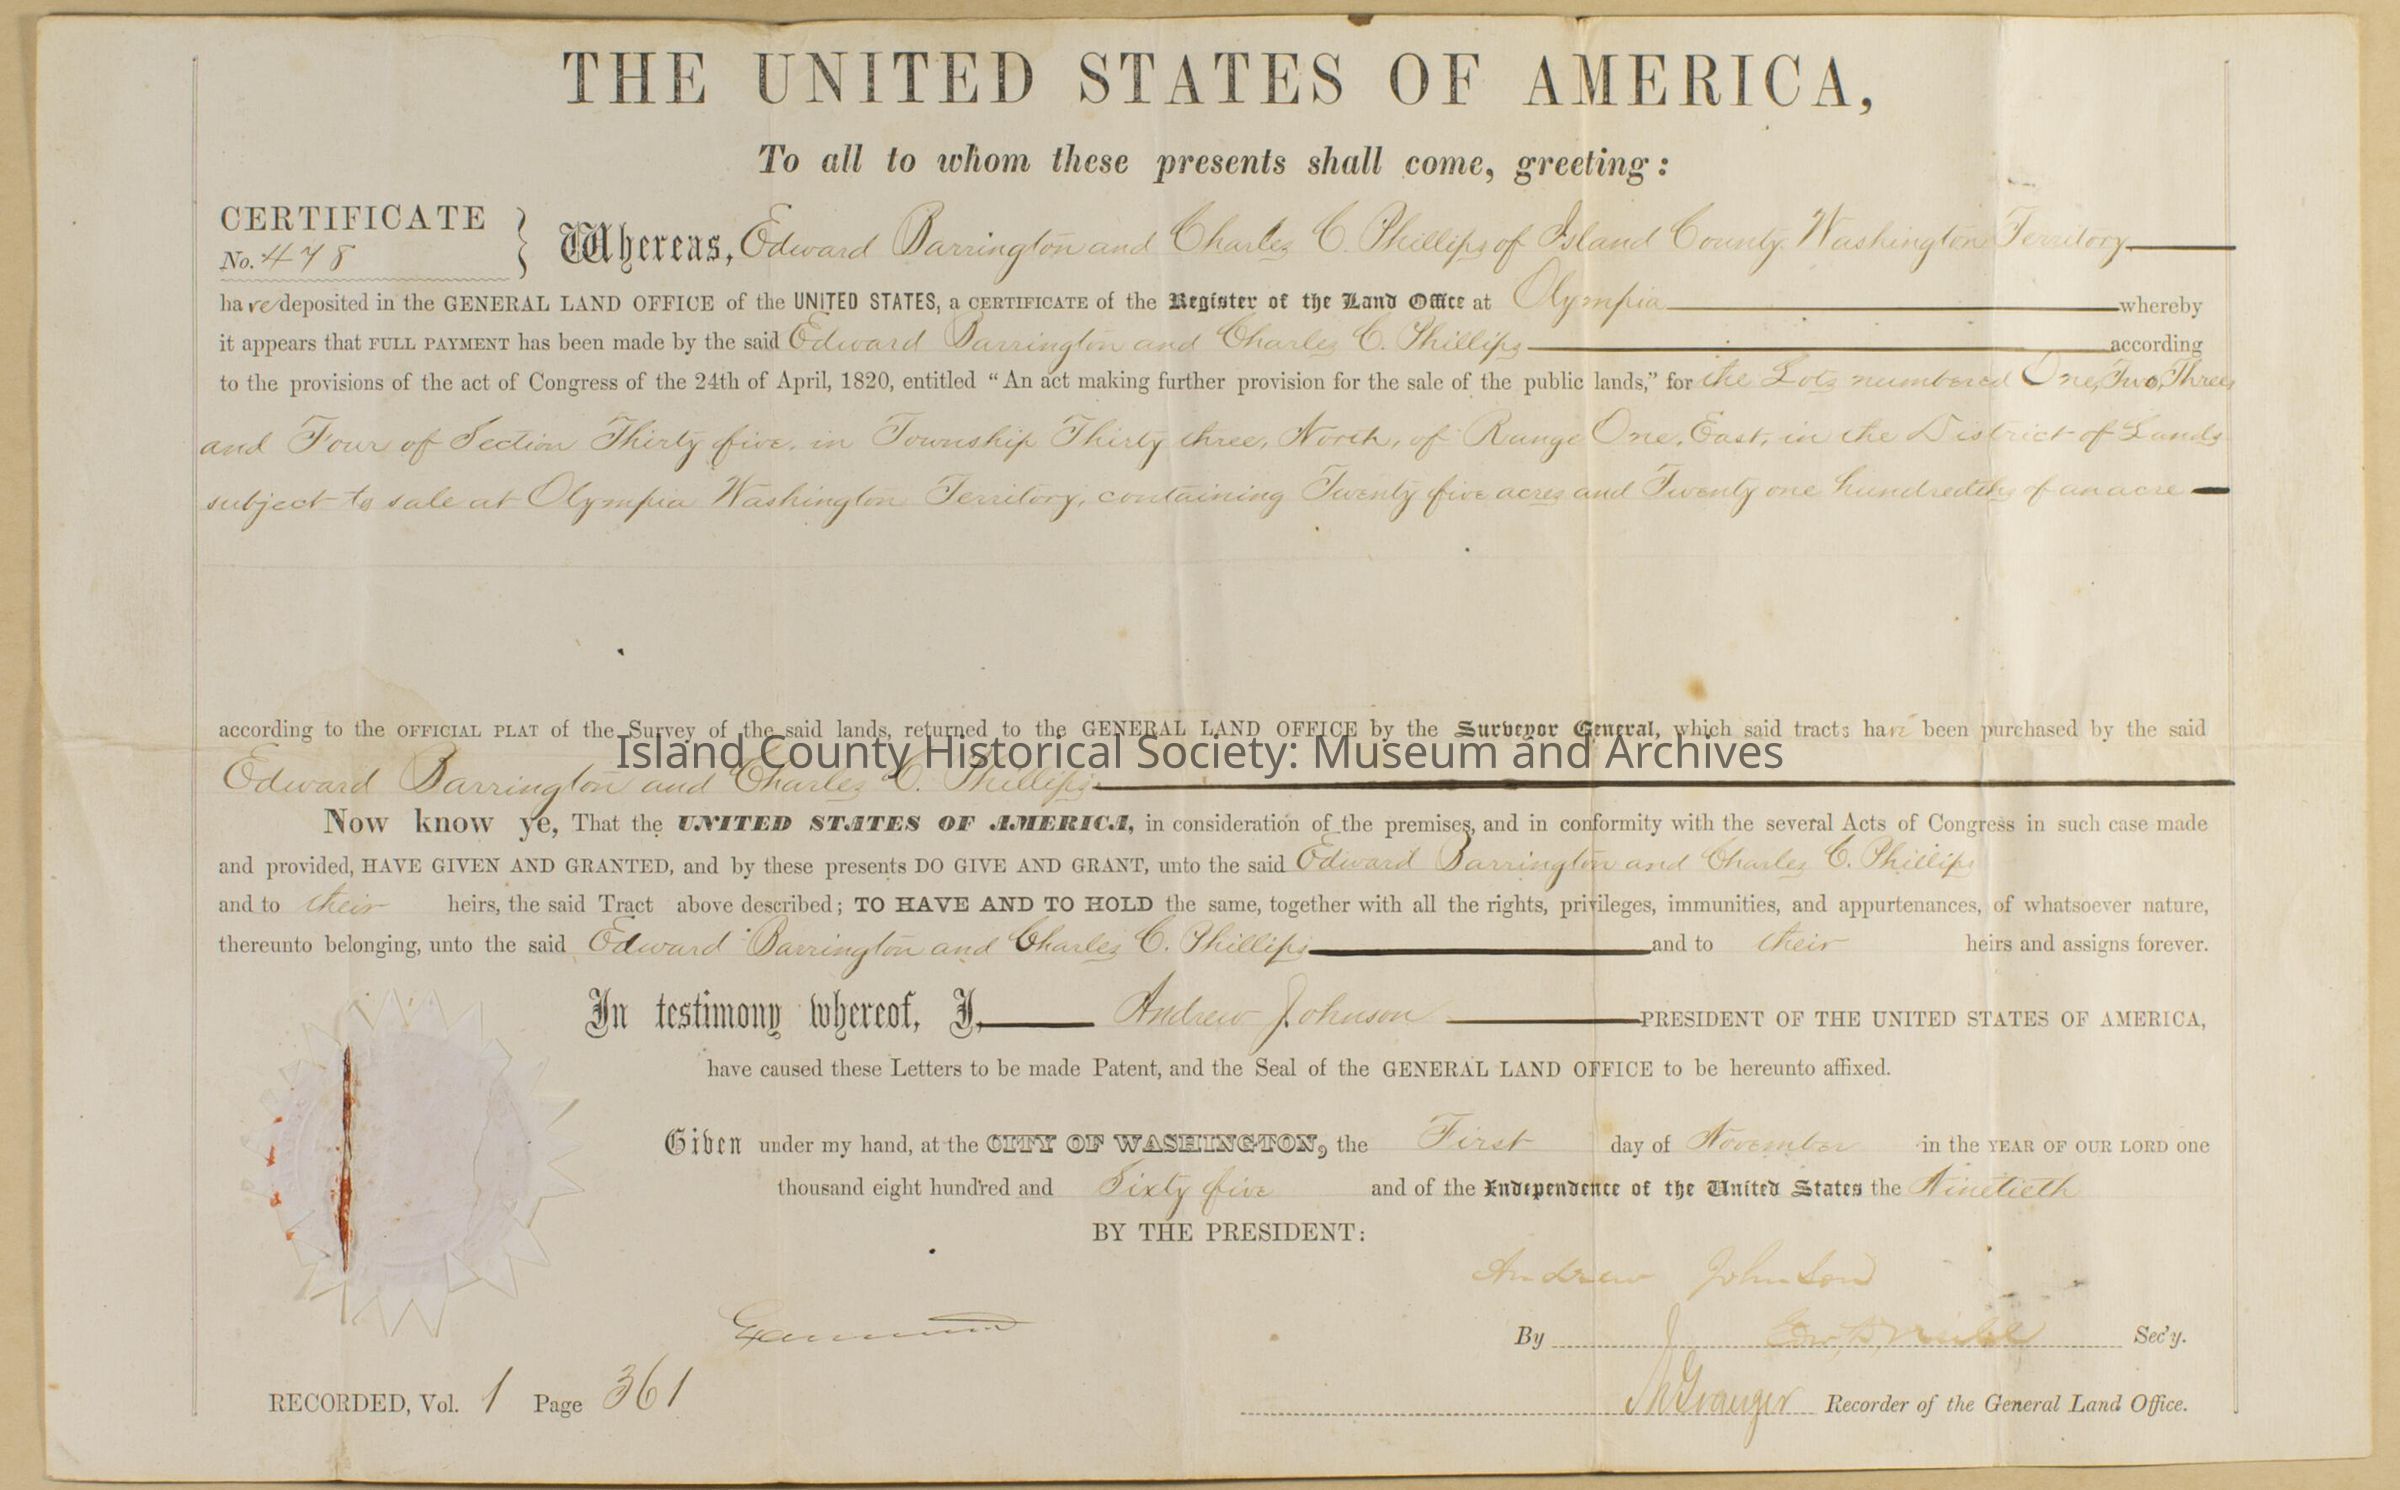 THE UNITED STATES OF AMERICA,
To all to whom these presents shall come, greeting:
CERTIFICATE
No. 478
Whereas, Edward Barrington and Charles C. Phillips of Island County Washington Territory
have deposited in the GENERAL LAND OFFICE of the UNITED STATES, a CERTIFICATE of the Register of the Land Office at Olympia whereby
it appears that FULL PAYMENT has been made by the said Edward Barrington and Charles C. Phillips according
to the provisions of the act of Congress of the 24th of April, 1820, entitled “An act making further provision for the sale of the public lands,” for the Lots numbered One, Two, Three,
and Four of Section Thirty five, in Township Thirty three, North, of Range One, East, in the District of Lands
subject to sale at Olympia Washington Territory, containing Twenty five acres and Twenty one hundredths of an acre
according to the OFFICIAL PLAT of the Survey of the said lands, returned to the GENERAL LAND OFFICE by the Surveyor General, which said tracts have been purchased by the said
Island County Historical Society: Museum and Archives
Edward Barrington and Charles C. Phillips
Now know ye, That the UNITED STATES OF AMERICA, in consideration of the premises, and in conformity with the several Acts of Congress in such case made
and provided, HAVE GIVEN AND GRANTED, and by these presents DO GIVE AND GRANT, unto the said Edward Barrington and Charles C. Phillips
and to their heirs, the said Tract above described; TO HAVE AND TO HOLD the same, together with all the rights, privileges, immunities, and appurtenances, of whatsoever nature,
thereunto belonging, unto the said Edward Barrington and Charles C. Phillips and to their heirs and assigns forever.
In testimony whereof, I, Andrew Johnson PRESIDENT OF THE UNITED STATES OF AMERICA,
have caused these Letters to be made Patent, and the Seal of the GENERAL LAND OFFICE to be hereunto affixed.
Given under my hand, at the CITY OF WASHINGTON, the First day of November in the YEAR OF OUR LORD one
thousand eight hundred and Sixty five and of the Independence of the United States the Ninetieth
BY THE PRESIDENT:
Andrew Johnson
By Sec'y.
RECORDED, Vol. 1 Page 361
Granger Recorder of the General Land Office.